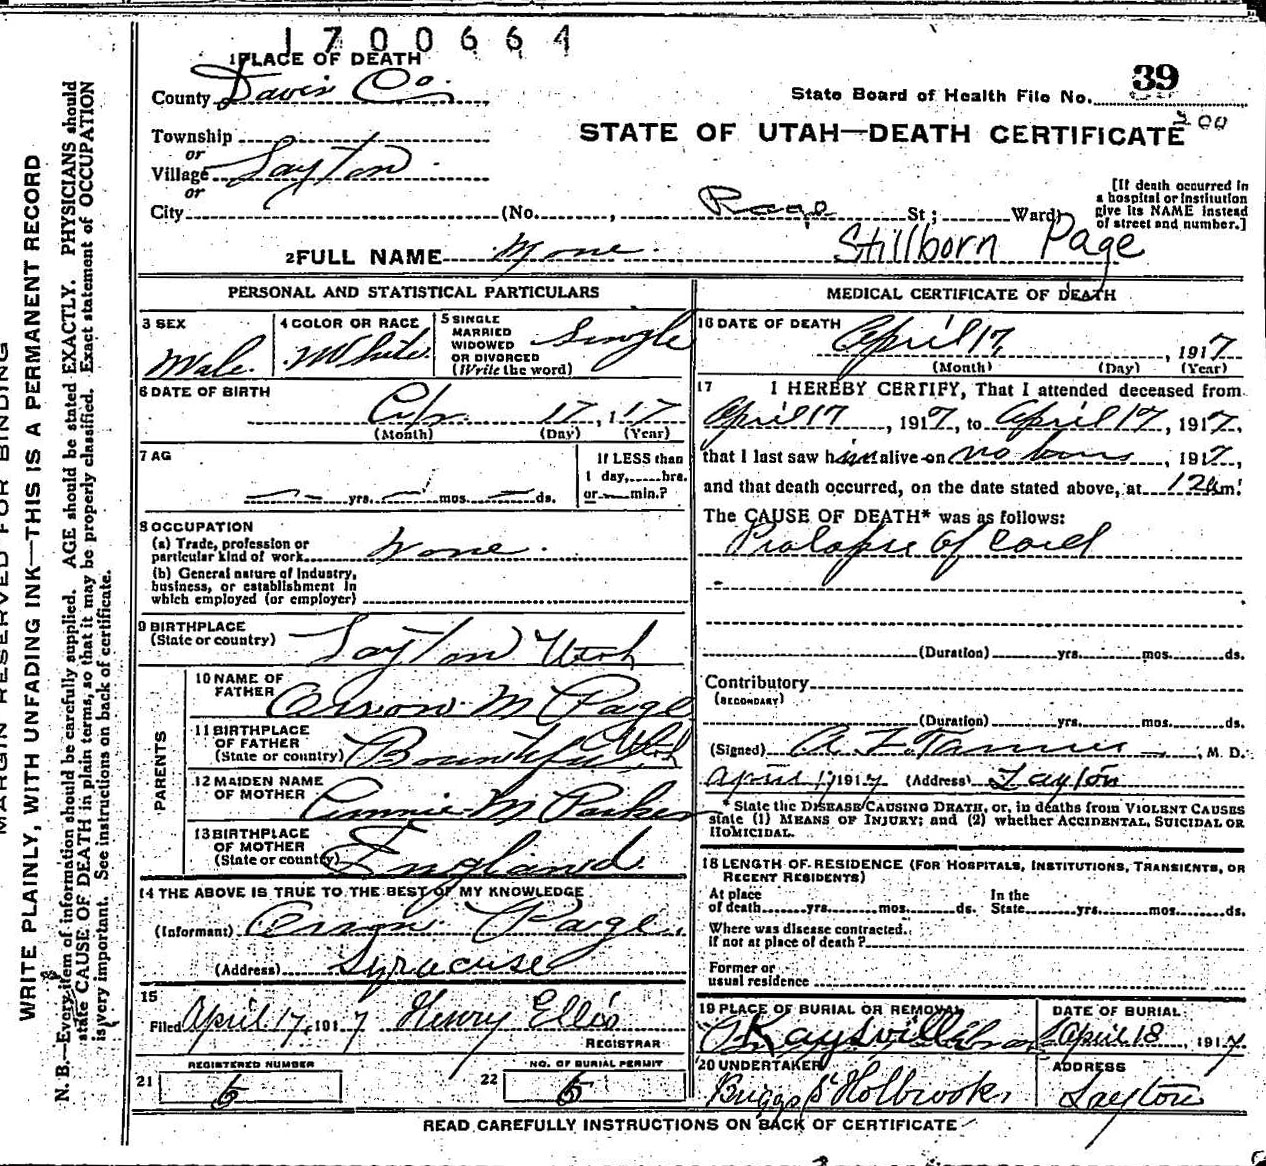 1700664
1 PLACE OF DEATH
County Davis Co.
State Board of Health File No. 39
300
Township
or
Village Layton
or
City (No. , Page St; Ward)
STATE OF UTAH—DEATH CERTIFICATE
[If death occurred in
a hospital or institution
give its NAME instead
of street and number.]
2 FULL NAME None Stillborn Page
PERSONAL AND STATISTICAL PARTICULARS
3 SEX
Male
4 COLOR OR RACE
White
5 SINGLE
MARRIED
WIDOWED
OR DIVORCED
(Write the word)
Single
6 DATE OF BIRTH
Apr. 17, 117
(Month) (Day) (Year)
7 AG
yrs. mos. ds.
If LESS than
1 day, hrs.
or min.?
8 OCCUPATION
(a) Trade, profession or
particular kind of work None.
(b) General nature of Industry,
business, or establishment in
which employed (or employer)
9 BIRTHPLACE
(State or country) Layton Utah
PARENTS
10 NAME OF
FATHER M Page
11 BIRTHPLACE
OF FATHER
(State or country) Bountiful Utah
12 MAIDEN NAME
OF MOTHER Annie M Parker
13 BIRTHPLACE
OF MOTHER
(State or country) England
14 THE ABOVE IS TRUE TO THE BEST OF MY KNOWLEDGE
(Informant) Page.
(Address) Syracuse
15
Filed April 17, 1917 Henry Ellis
REGISTRAR
REGISTERED NUMBER
21 5
NO. OF BURIAL PERMIT
22 5
MEDICAL CERTIFICATE OF DEATH
16 DATE OF DEATH
April 17, 1917
(Month) (Day) (Year)
17 I HEREBY CERTIFY, That I attended deceased from
April 17, 1917, to April 17, 1917,
that I last saw him alive on , 1917,
and that death occurred, on the date stated above, at 12 am.
The CAUSE OF DEATH* was as follows:
Prolapse of Cord
(Duration) yrs. mos. ds.
Contributory
(SECONDARY)
(Duration) yrs. mos. ds.
(Signed) , M. D.
April 17 1917 (Address) Layton
* State the DISEASE CAUSING DEATH, or, in deaths from VIOLENT CAUSES
state (1) MEANS OF INJURY; and (2) whether ACCIDENTAL, SUICIDAL OR
HOMICIDAL.
18 LENGTH OF RESIDENCE (FOR HOSPITALS, INSTITUTIONS, TRANSIENTS, OR
RECENT RESIDENTS)
At place
of death yrs. mos. ds.
In the
State yrs. mos. ds.
Where was disease contracted.
if not at place of death?
Former or
usual residence
19 PLACE OF BURIAL OR REMOVAL
Kaysville
DATE OF BURIAL
April 18, 1917.
20 UNDERTAKER
Briggs & Holbrook.
ADDRESS
Layton
READ CAREFULLY INSTRUCTIONS ON BACK OF CERTIFICATE
MARGIN RESERVED FOR BINDING
WRITE PLAINLY, WITH UNFADING INK—THIS IS A PERMANENT RECORD
N. B.—Every item of information should be carefully supplied. AGE should be stated EXACTLY. PHYSICIANS should
state CAUSE OF DEATH in plain terms, so that it may be properly classified. Exact statement of OCCUPATION
is very important. See instructions on back of certificate.